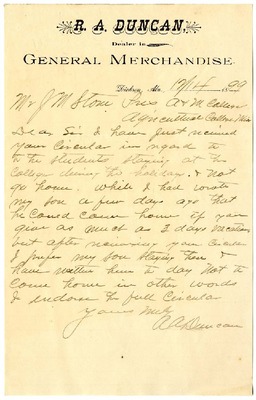 R. A. DUNCAN,
Dealer in
GENERAL MERCHANDISE.
Dickson, Ala. 12/14 1899
Mr J M Stone Pres A & M College
Agricultural College Miss
Dear Sir I have Just received
your Circular in regard to
to the students staying at the
college during the holidays & not
go home. While I had wrote
my son a few days ago that
he could come home if you
give as much as 3 days
but after receiving your Circular
I prefer my son staying there &
have written him to day Not to
come home in other words
I endorse the full Circular
Yours truly
R A Duncan